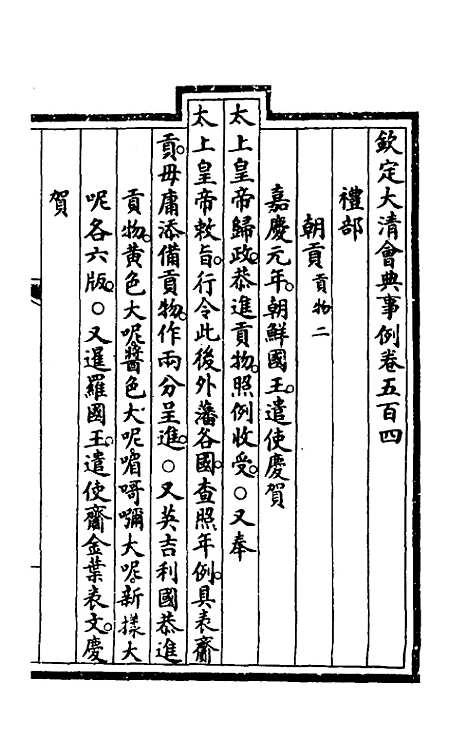 欽定大清會典事例卷五百四
禮部
朝貢貢物二
嘉慶元年。朝鮮國王。遣使慶賀
太上皇帝歸政。恭進貢物。照例收受。○又奉
太上皇帝敕旨。行令此後外藩各國。查照年例。具表齎
貢。毋庸添備貢物。作兩分呈進。○又英吉利國恭進
貢物。黃色大呢醬色大呢嗜哥嗰大呢。新樣大
呢各六版。○又暹羅國王。遣使齎金葉表文。慶
賀